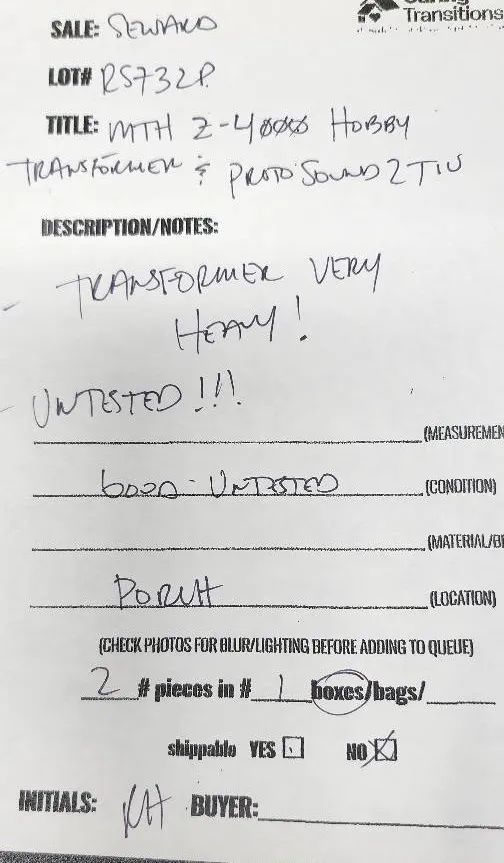 Transitions
SALE: SEWARD
LOT# RS732P
TITLE: MTH Z-4000 HOBBY
TRANSFORMER & PROTO SOUND 2 TIU
DESCRIPTION/NOTES:
- TRANSFORMER VERY
HEAVY!
- UNTESTED!!!
(MEASUREMEN
GOOD - UNTESTED (CONDITION)
(MATERIAL/B
PORCH (LOCATION)
(CHECK PHOTOS FOR BLUR/LIGHTING BEFORE ADDING TO QUEUE)
2 # pieces in # 1 boxes/bags/
shippable YES NO X
INITIALS: RH BUYER: